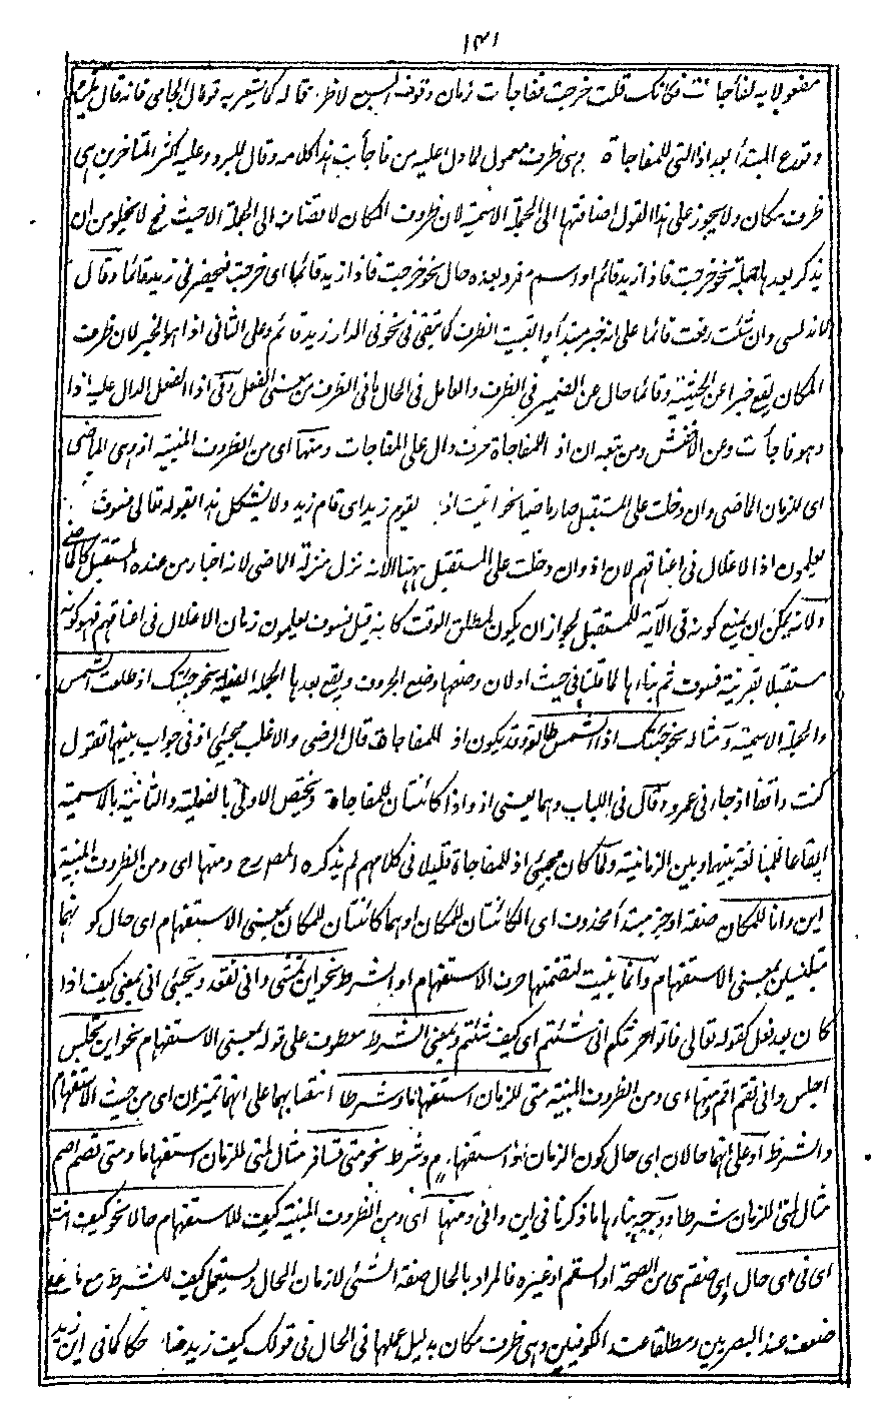 ١٤١
مفعولا به لفاجأت فكانك قلت خرجت ففاجأت زمان وقوف السبع لا ظرفا له كما يشعر به قول الجامى فانه قال
وقوع المبتدأ بعد اذا التى للمفاجاة هى ظرف معمول لما دل عليه من فاجأت هذا كلامه وقال المبرد وعليه اكثر المتاخرين هى
ظرف مكان ولا يجوز على هذا القول اضافتها الى الجملة الاسمية لان ظروف المكان لا تضاف الى الجملة الا حيث فح لا يخلو من ان
يذكر بعدها جملة نحو خرجت فاذا زيد قائم او اسم مفرد بعده حال نحو خرجت فاذا زيد قائما اى خرجت فبحضرتى زيد قائما وقال
الاندلسى وان شئت رفعت قائما على انه خبر مبتدأ والغيت الظرف كما تبقى فى نحو فى الدار زيد قائم وعلى الثانى اذا هو الخبر لان ظرف
المكان يقع خبرا عن الجثية وقائما حال عن الضمير فى الظرف والعامل فى الحال ما فى الظرف من معنى الفعل وفى اذا الفعل الدال عليه اذا
وهو فاجأت وعن الاخفش ومن تبعه ان اذا المفاجاة حرف دال على المفاجات ومنها اى من الظروف المبنية اذ وهى للماضى
اى للزمان الماضى وان دخلت على المستقبل صار ماضيا نحو اتيت اذ يقوم زيد اى قام زيد ولا يشكل هذا بقوله تعالى فسوف
يعلمون اذ الاغلال فى اعناقهم لان اذ وان دخلت على المستقبل ههنا الا انه نزل منزلة الماضى لانه اخبار من عنده المستقبل كالماضى
ولانه يمكن ان يمنع كونه فى الآية للمستقبل لجواز ان يكون لمطلق الوقت كانه قيل فسوف يعلمون زمان الاغلال فى اعناقهم فهو كونه
مستقبلا بقرينة فسوف ثم بناءها لما قلنا فى حيث او لان وضعها وضع الحروف ويقع بعدها الجملة الفعلية نحو جئتك اذ طلعت الشمس
والجملة الاسمية ومثاله نحو جئتك اذ الشمس طالعة وقد يكون اذ للمفاجاة قال الرضى والاغلب مجيئ اذ فى جواب بينما تقول
كنت واقفا اذ جاءنى عمرو وقال فى اللباب وهما يعنى اذ واذا كائنتان للمفاجاة ويختص الاولى بالفعلية والثانية بالاسمية
ايقاعا للمخالفة بينها وبين الزمانية ولما كان مجيئ اذ للمفاجاة قليلا فى كلامهم لم يذكره المصرح ومنها اى ومن الظروف المبنية
اين وانا للمكان صفة او خبر مبتدأ محذوف اى الكائنتان للمكان او هما كائنتان للمكان بمعنى الاستفهام اى حال كونهما
متلبسين بمعنى الاستفهام وانما بنيت لتضمنها حرف الاستفهام او الشرط نحو اين تمشى وانى تقعد ويجيئ انى بمعنى كيف اذا
كان بعد فعل كقوله تعالى فاتوا حرثكم انى شئتم اى كيف شئتم وبمعنى الشرط معطوف على قوله بمعنى الاستفهام نحو اين تجلس
اجلس وانى تقم اقم ومنها اى ومن الظروف المبنية متى للزمان استفهاما وشرطا انتصابهما على انهما تميزان اى من حيث الاستفهام
والشرط او على انهما حالان اى حال كون الزمان ذا استفهام وشرط نحو متى تسافر مثال لمتى للزمان استفهاما ومتى تصم اصم
مثال لمتى للزمان شرطا ووجه بناءها ما ذكرنا فى اين وانى ومنها اى ومن الظروف المبنية كيف للاستفهام حالا نحو كيف انت
اى فى اى حال اى صفة هى من الصحة او السقم او غيره فالمراد بالحال صفة الشئ لا زمان الحال ويستعمل كيف للشرط مع ما
ضعف عند البصريين ومطلقا عند الكوفيين وهى ظرف مكان بدليل عملها فى الحال فى قولك كيف زيد ضاحكا كما فى اين زيد